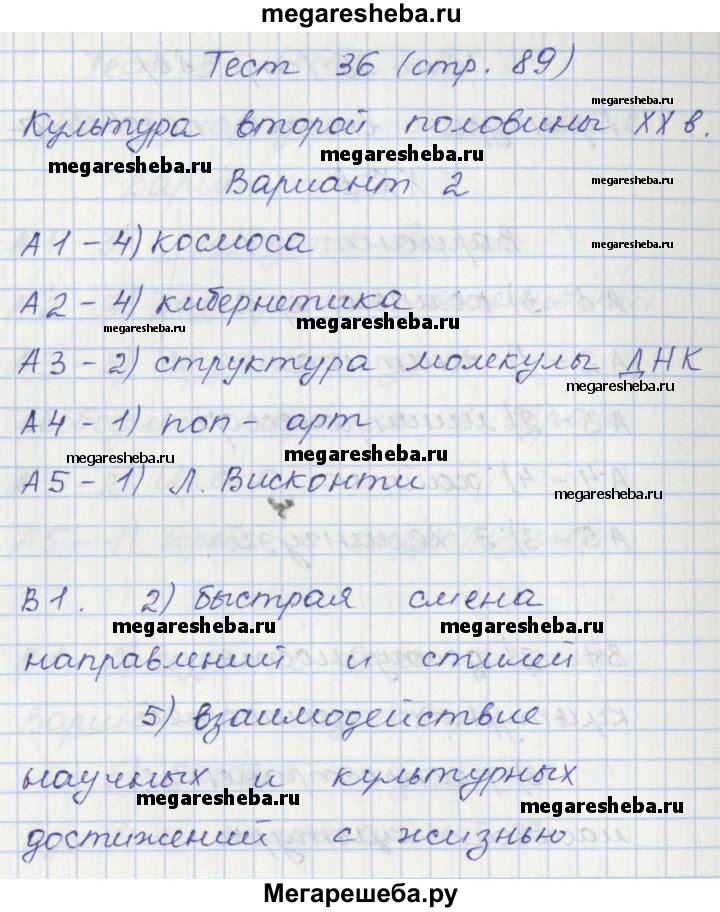 megaresheba.ru
Тест 36 (стр. 89)
Культура второй половины XX в.
megaresheba.ru
megaresheba.ru
megaresheba.ru
Вариант 2
megaresheba.ru
А1 - 4) космоса
megaresheba.ru
А2 - 4) кибернетика
megaresheba.ru
megaresheba.ru
А3 - 2) структура молекулы ДНК
megaresheba.ru
А4 - 1) поп-арт
megaresheba.ru
megaresheba.ru
А5 - 1) Л. Висконти
megaresheba.ru
В1. 2) быстрая смена
megaresheba.ru
megaresheba.ru
направлений и стилей
5) взаимодействие
научных и культурных
megaresheba.ru
megaresheba.ru
достижений с жизнью
Мегарешеба.ру